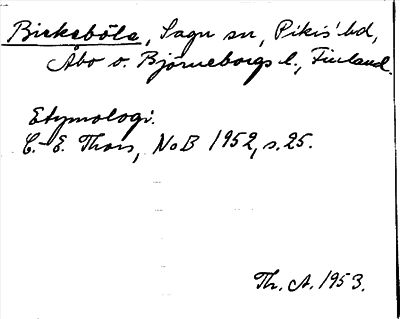 Birksböle, Sagu sn, Pikis' hd,
Åbo o. Björneborgs l., Finland.
Etymologi.
C.-E. Thors, NoB 1952, s. 25.
Th. A. 1953.